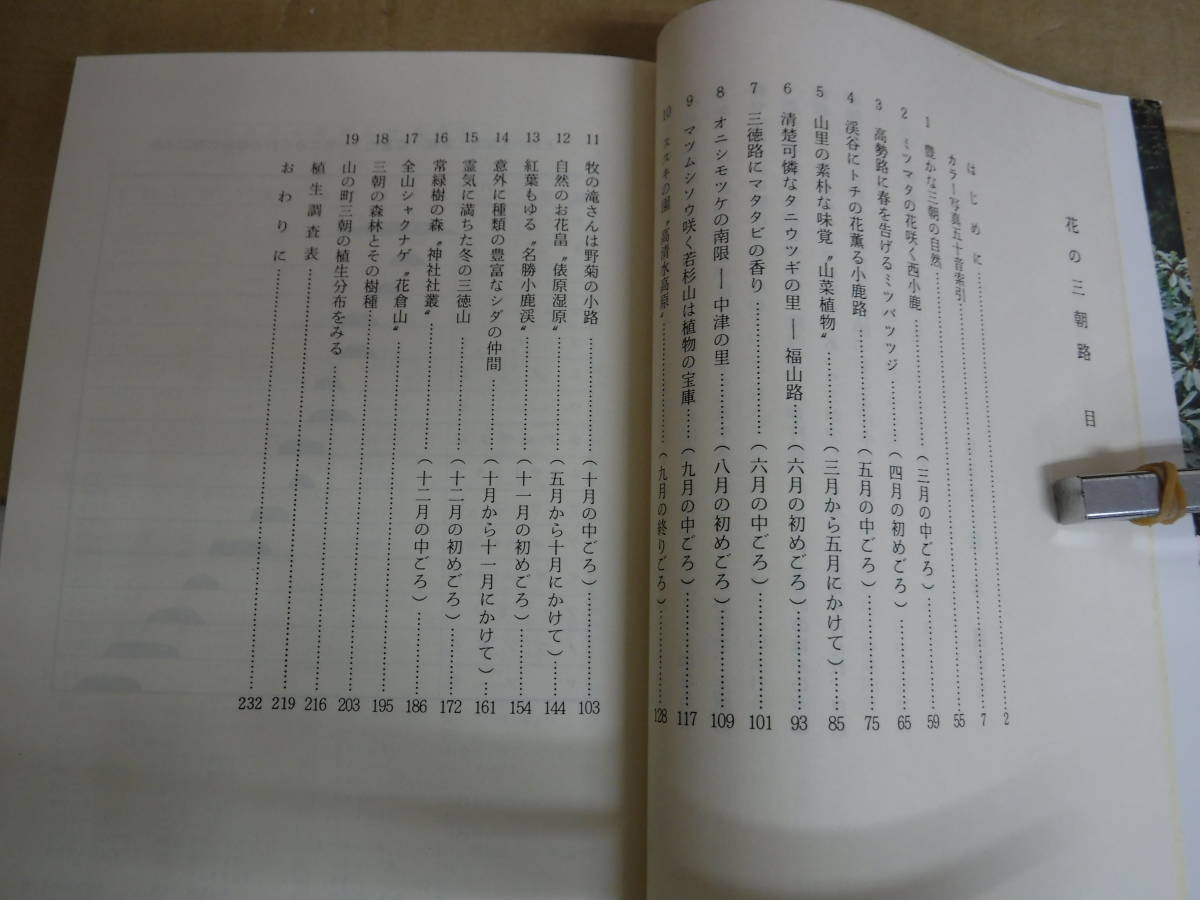 花の三朝路 目
はじめに……2
カラー写真五十音索引……7
1 豊かな三朝の自然……55
2 ミツマタの花咲く西小鹿……(三月の中ごろ)……59
3 高勢路に春を告げるミツバツツジ……(四月の初めごろ)……65
4 渓谷にトチの花薫る小鹿路……(五月の中ごろ)……75
5 山里の素朴な味覚〝山菜植物〟……(三月から五月にかけて)……85
6 清楚可憐なタニウツギの里 ― 福山路……(六月の初めごろ)……93
7 三徳路にマタタビの香り……(六月の中ごろ)……101
8 オニシモツケの南限 ― 中津の里……(八月の初めごろ)……109
9 マツムシソウ咲く若杉山は植物の宝庫……(九月の中ごろ)……117
10 ススキの園〝高清水高原〟……(九月の終りごろ)……128
11 牧の滝さんは野菊の小路……(十月の中ごろ)……103
12 自然のお花畠〝俵原湿原〟……(五月から十月にかけて)……144
13 紅葉もゆる〝名勝小鹿渓〟……(十一月の初めごろ)……154
14 意外に種類の豊富なシダの仲間……(十月から十一月にかけて)……161
15 霊気に満ちた冬の三徳山……(十二月の初めごろ)……172
16 常緑樹の森〝神社社叢〟……(十二月の中ごろ)……186
17 全山シャクナゲ〝花倉山〟……195
18 三朝の森林とその樹種……203
19 山の町三朝の植生分布をみる……216
植生調査表……219
おわりに……232